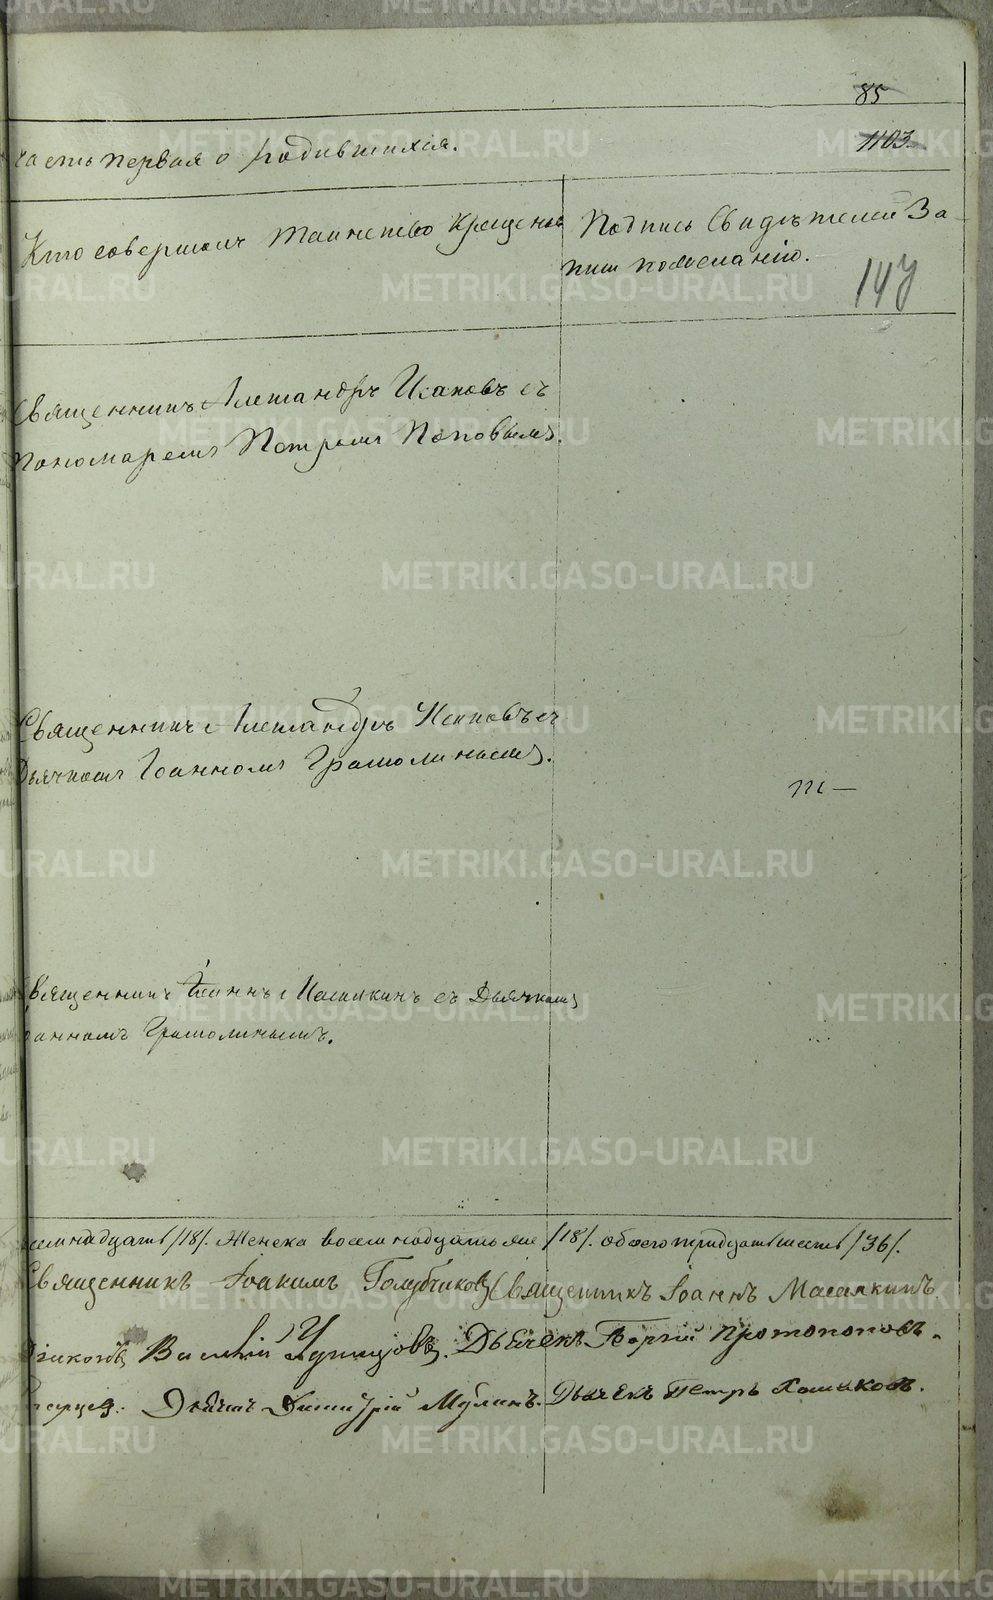 85
1103
часть первая о родившихся.
Кто совершалъ таинство крещенія
Подпись свидѣтелей За-
писи по желанію.
147
Священникъ Александръ Исаковъ съ
Пономаремъ Петромъ Поповымъ.
Священникъ Александръ Исаковъ съ
Дьячкомъ Іоанномъ
священникъ Іоаннъ съ Дьячкомъ
Іоанномъ
/18/. Женска восемнадцать /18/. обоего тридцать шесть /36/.
Священникъ Іоакимъ Голубчиковъ Священникъ Іоаннъ
Василій Дьячекъ Георгій Протопоповъ.
Димитрій Мулинъ. Дьячекъ Петръ
METRIKI.GASO-URAL.RU